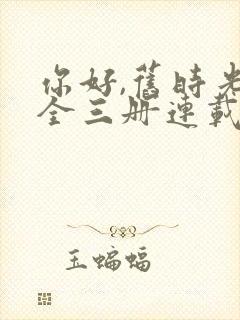 你好,舊時光
全三册連載
玉蝙蝠